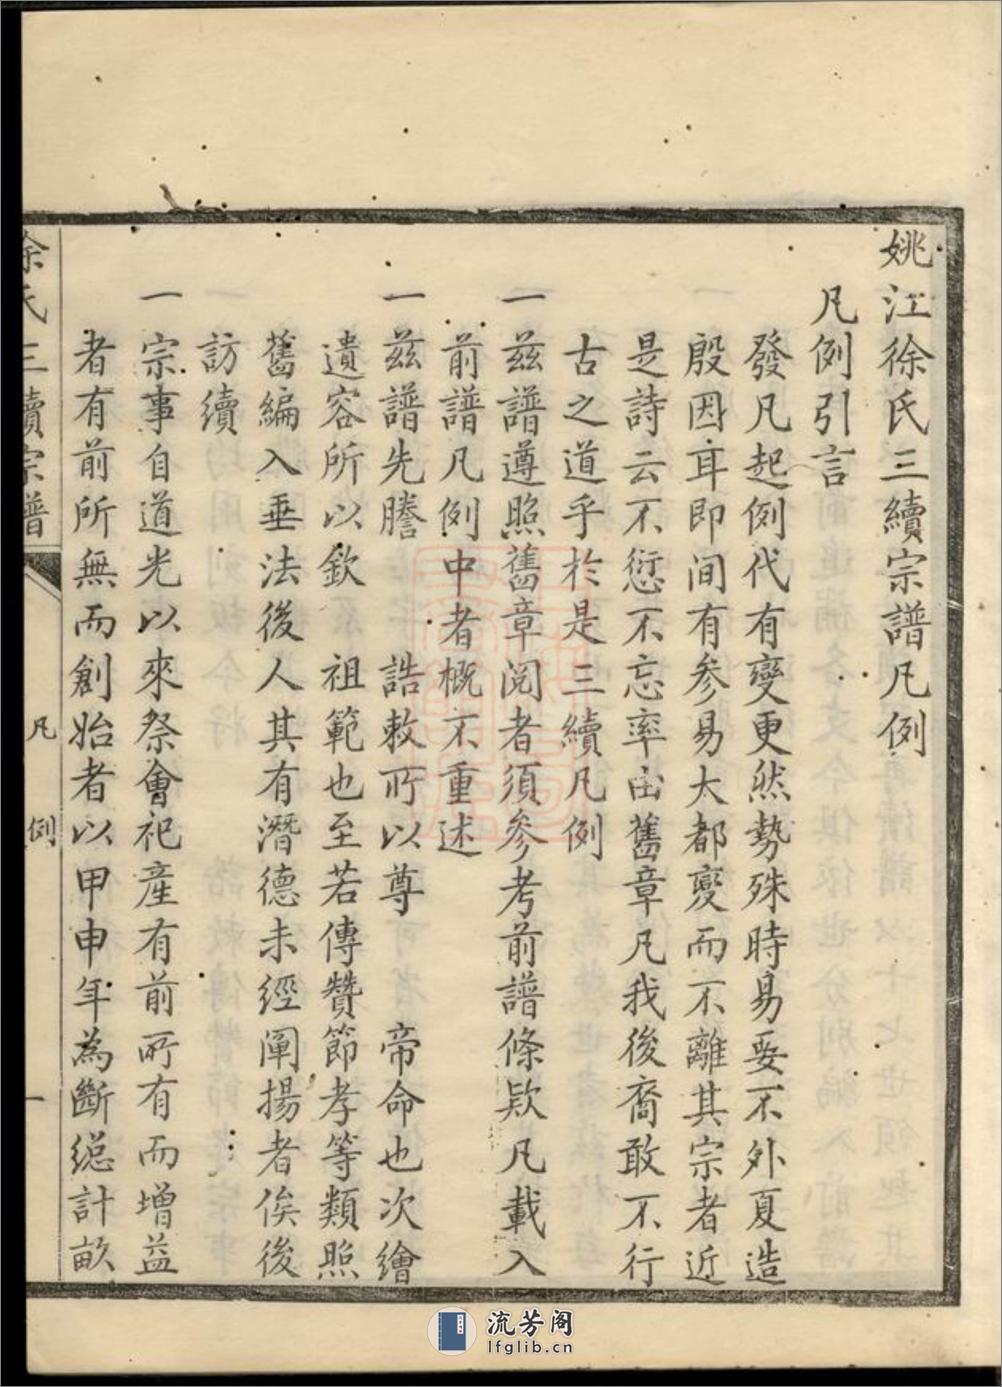 姚江徐氏三續宗譜凡例
凡例引言
發凡起例代有變更然勢殊時易要不外夏造
殷因耳即間有參易大都變而不離其宗者近
是詩云不愆不忘率由舊章凡我後裔敢不行
古之道乎於是三續凡例
一茲譜遵照舊章閱者須參考前譜條欵凡載入
前譜凡例中者概不重述
一茲譜先謄 誥敕所以尊 帝命也次繪
遺容所以欽 祖範也至若傳贊節孝等類照
舊編入垂法後人其有潛德未經闡揚者俟後
訪續
一宗事自道光以來祭會祀產有前所有而增益
者有前所無而創始者以甲申年為斷總計畝
徐氏三續宗譜 凡例 一
流芳阁
lfglib.cn